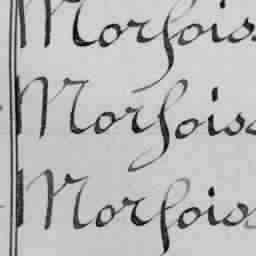 Morſois
Morſois
Morſois